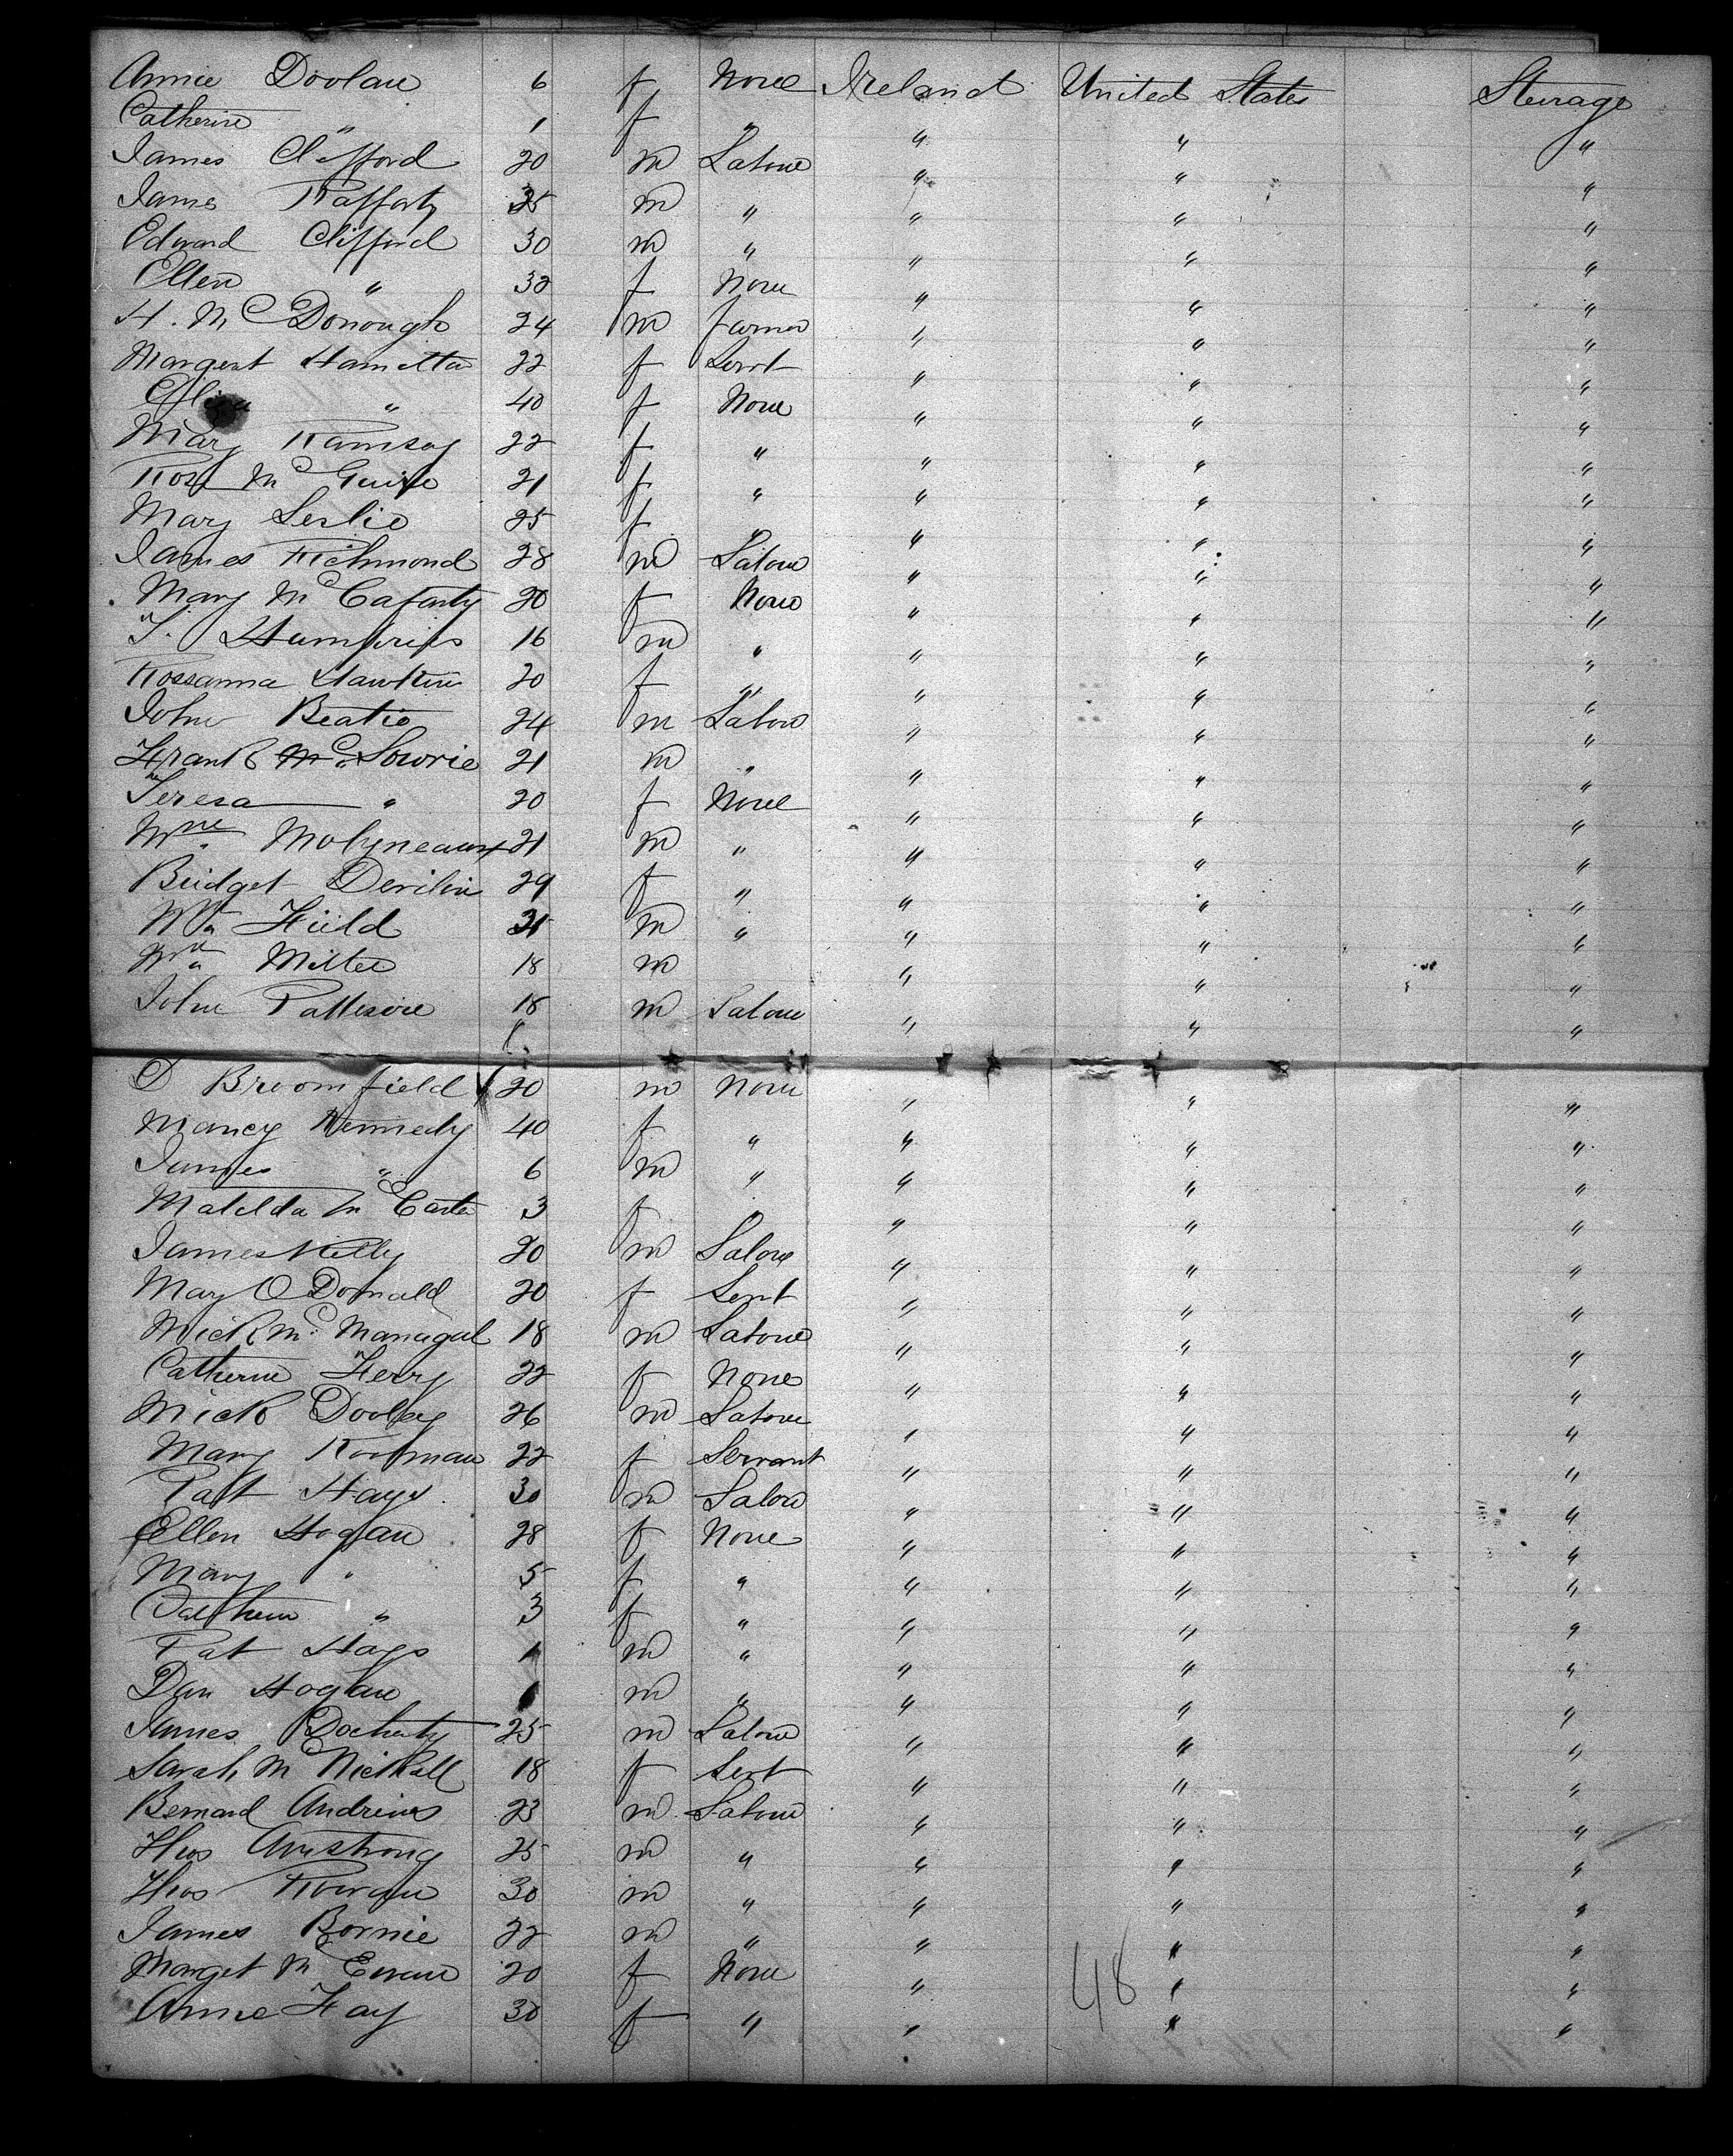 Annie Doolan 6 f None Ireland United States Steerage
Catherine " 1 f " " " "
James Clifford 20 m Labour " " "
James Rafferty 35 m " " " "
Edward Clifford 30 m " " " "
Ellen " 32 f None " " "
H. McDonough 24 m farmer " " "
Margaret Hamilton 22 f Servt " " "
Eliza " 40 f None " " "
Mary Ramsay 22 f " " " "
Rose McGuire 21 f " " " "
Mary Leslie 25 f " " " "
James Richmond 28 m Labour " " "
Mary McCafarty 20 f None " " "
T. Humphries 16 m " " " "
Rossanna Hawkins 20 f " " " "
John Beatie 24 m Labour " " "
Frank Mc Lowrie 21 m " " " "
Teresa " 20 f None " " "
Wm Molyneaux 21 m " " " "
Bridget Devilin 29 f " " " "
Wm Field 21 m " " " "
Wm Miller 18 m " " "
John Patterson 18 m Labour " " "
D Broomfield 20 m None " " "
Nancy Kennedy 40 f " " " "
James " 6 m " " " "
Matilda McCarter 3 f " " " "
James Kelly 20 m Labour " " "
Mary O Donald 20 f Servt " " "
Mick Mc Managal 18 m Labour " " "
Catherine Ferry 22 f None " " "
Mick Dooley 26 m Labour " " "
Mary 22 f Servant " " "
Patt Hays 30 m Labour " " "
Ellen Hogan 28 f None " " "
Mary " 5 f " " " "
Catherine " 3 f " " " "
Pat Hays 1 m " " " "
Dan Hogan 1 m " " " "
James Docherty 25 m Labour " " "
Sarah McNickall 18 f Servt " " "
Bernard Andrews 23 m Labour " " "
Thos Armstrong 25 m " " " "
Thos Rowan 30 m " " " "
James Bornie 22 m " " " "
Marget McEwan 20 f None " " "
Annie Hay 30 f " " " "
48